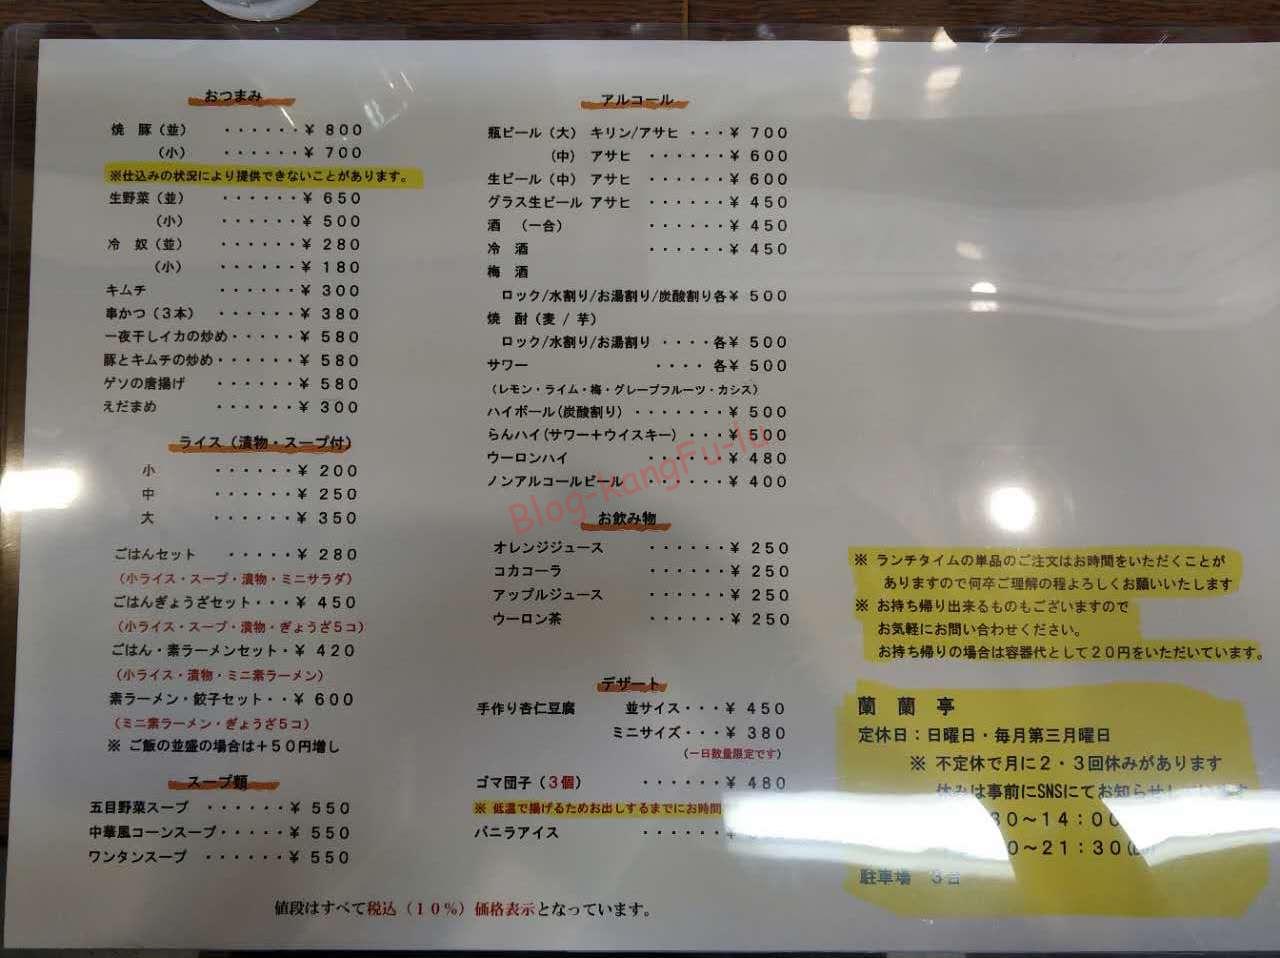 おつまみ
焼　豚（並）　・・・・・・¥ ８００
（小）　・・・・・・¥ ７００
※仕込みの状況により提供できないことがあります。
生野菜（並）　・・・・・・¥ ６５０
（小）　・・・・・・¥ ５００
冷　奴（並）　・・・・・・¥ ２８０
（小）　・・・・・・¥ １８０
キムチ　・・・・・・¥ ３００
串かつ（３本）　・・・・・・¥ ３８０
一夜干しイカの炒め・・・・・¥ ５８０
豚とキムチの炒め・・・・・・¥ ５８０
ゲソの唐揚げ　・・・・・・¥ ５８０
えだまめ　・・・・・・¥ ３００
ライス（漬物・スープ付）
小　・・・・・・¥ ２００
中　・・・・・・¥ ２５０
大　・・・・・・¥ ３５０
ごはんセット　・・・・・¥ ２８０
（小ライス・スープ・漬物・ミニサラダ）
ごはんぎょうざセット・・・¥ ４５０
（小ライス・スープ・漬物・ぎょうざ５コ）
ごはん・素ラーメンセット・¥ ４２０
（小ライス・漬物・ミニ素ラーメン）
素ラーメン・餃子セット・・¥ ６００
（ミニ素ラーメン・ぎょうざ５コ）
※ ご飯の並盛の場合は＋５０円増し
スープ類
五目野菜スープ　・・・・・・¥ ５５０
中華風コーンスープ・・・・・¥ ５５０
ワンタンスープ　・・・・・・¥ ５５０
アルコール
瓶ビール（大） キリン/アサヒ ・・・¥ ７００
（中） アサヒ　・・・・・・¥ ６００
生ビール（中） アサヒ　・・・・・・¥ ６００
グラス生ビール アサヒ　・・・・・・¥ ４５０
酒　（一合）　・・・・・・¥ ４５０
冷　酒　・・・・・・¥ ４５０
梅　酒
ロック/水割り/お湯割り/炭酸割り各¥ ５００
焼　酎（麦 / 芋）
ロック/水割り/お湯割り ・・・・各¥ ５００
サワー　・・・・ 各¥ ５００
（レモン・ライム・梅・グレープフルーツ・カシス）
ハイボール(炭酸割り) ・・・・・・・¥ ５００
らんハイ(サワー＋ウイスキー) ・・・¥ ５００
ウーロンハイ　・・・・・・¥ ４８０
ノンアルコールビール　・・・・・・¥ ４００
Blog-kangFu-lu
お飲み物
オレンジジュース　・・・・・・¥ ２５０
コカコーラ　・・・・・・¥ ２５０
アップルジュース　・・・・・・¥ ２５０
ウーロン茶　・・・・・・¥ ２５０
デザート
手作り杏仁豆腐　並サイス・・・¥ ４５０
ミニサイズ・・・¥ ３８０
（一日数量限定です）
ゴマ団子（３個）　・・・・・・¥ ４８０
※ 低温で揚げるためお出しするまでにお時間
バニラアイス　・・・・・・¥
値段はすべて税込（１０％）価格表示となっています。
※ ランチタイムの単品のご注文はお時間をいただくことが
ありますので何卒ご理解の程よろしくお願いいたします
※ お持ち帰り出来るものもございますので
お気軽にお問い合わせください。
お持ち帰りの場合は容器代として２０円をいただいています。
蘭　蘭　亭
定休日：日曜日・毎月第三月曜日
※ 不定休で月に２・３回休みがあります
休みは事前にSNSにてお知らせしています
３０～１４：００
０～２１：３０
駐車場　３台